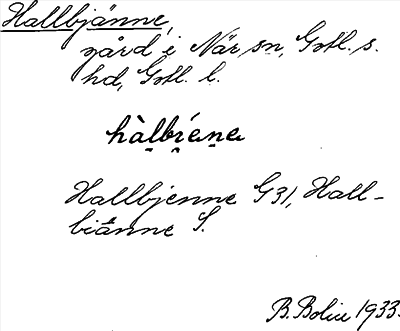 Hallbjänne,
gård i När sn, Gotl. s.
hd, Gotl. l.
hàlbı́ena
Hallbjenne G31, Hall-
biänne S.
B. Bolin 1933.